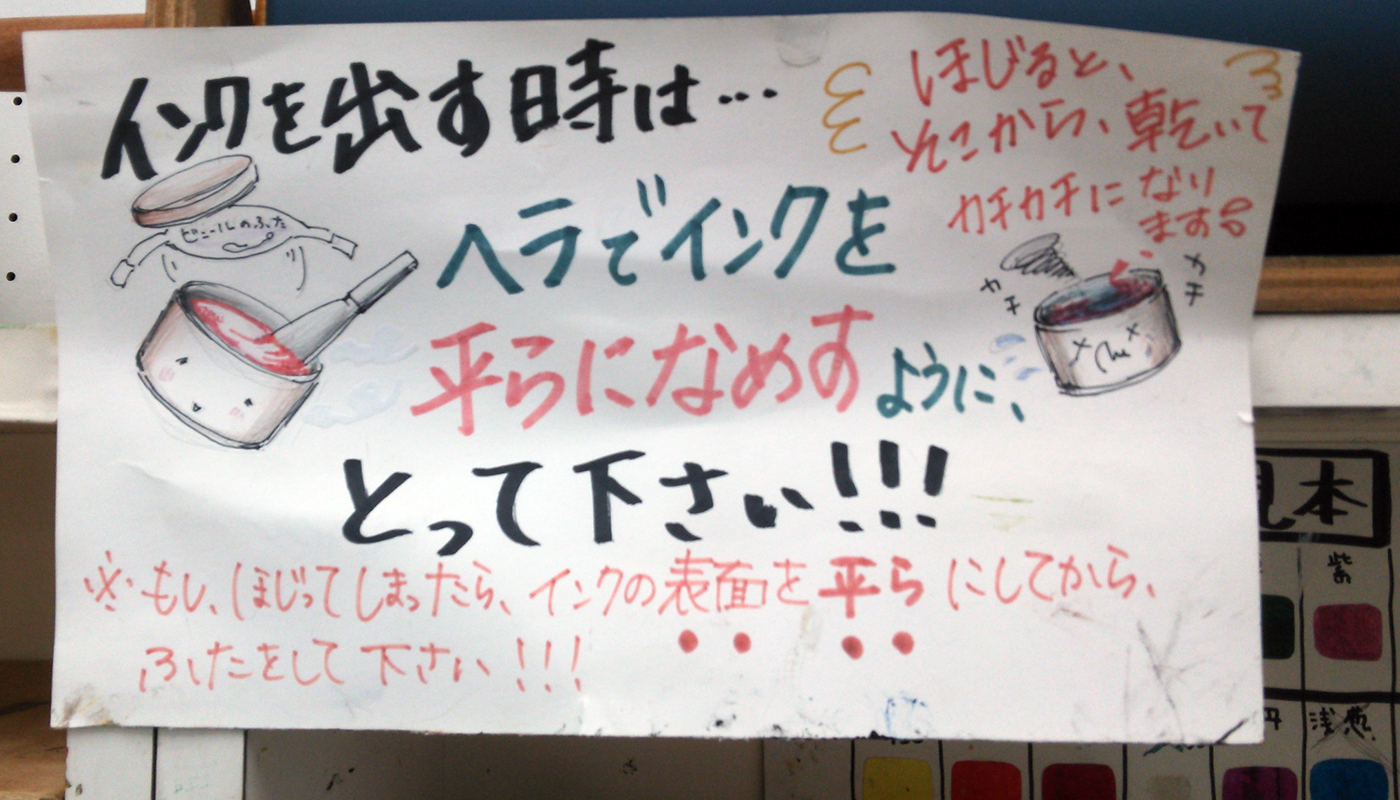 インクを出す時は…
ほじると、
そこから、乾いて
カチカチに なり
ます
ビニールのふた
ヘラでインクを
カチ
カチ
平らになめすように、
とって下さい!!!
※もし、ほじってしまったら、インクの表面を平らにしてから、
ふたをして下さい!!!
見本
紫
丹
浅葱